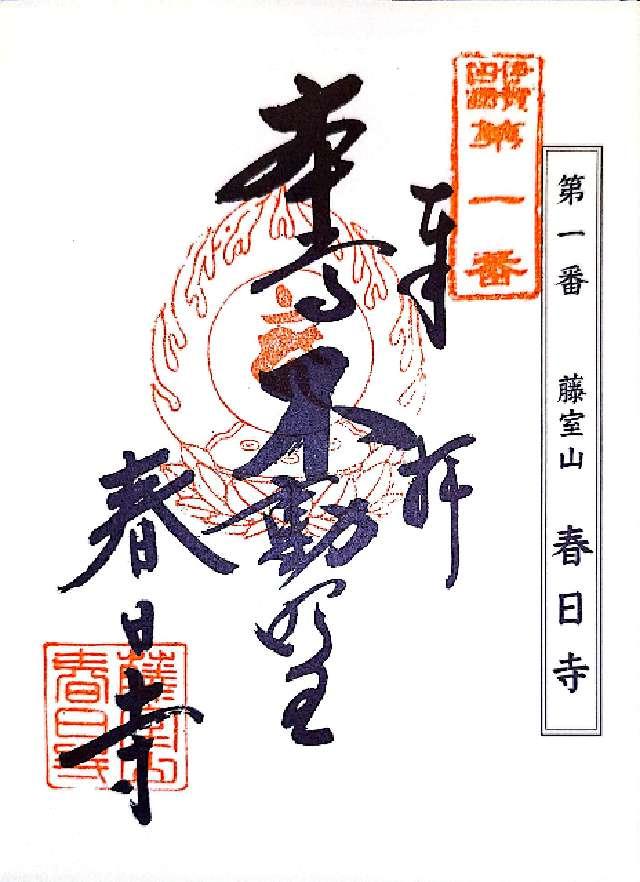 第一番 藤室山 春日寺
第一番
奉拝
本尊不動明王
春日寺
藤室山
春日寺